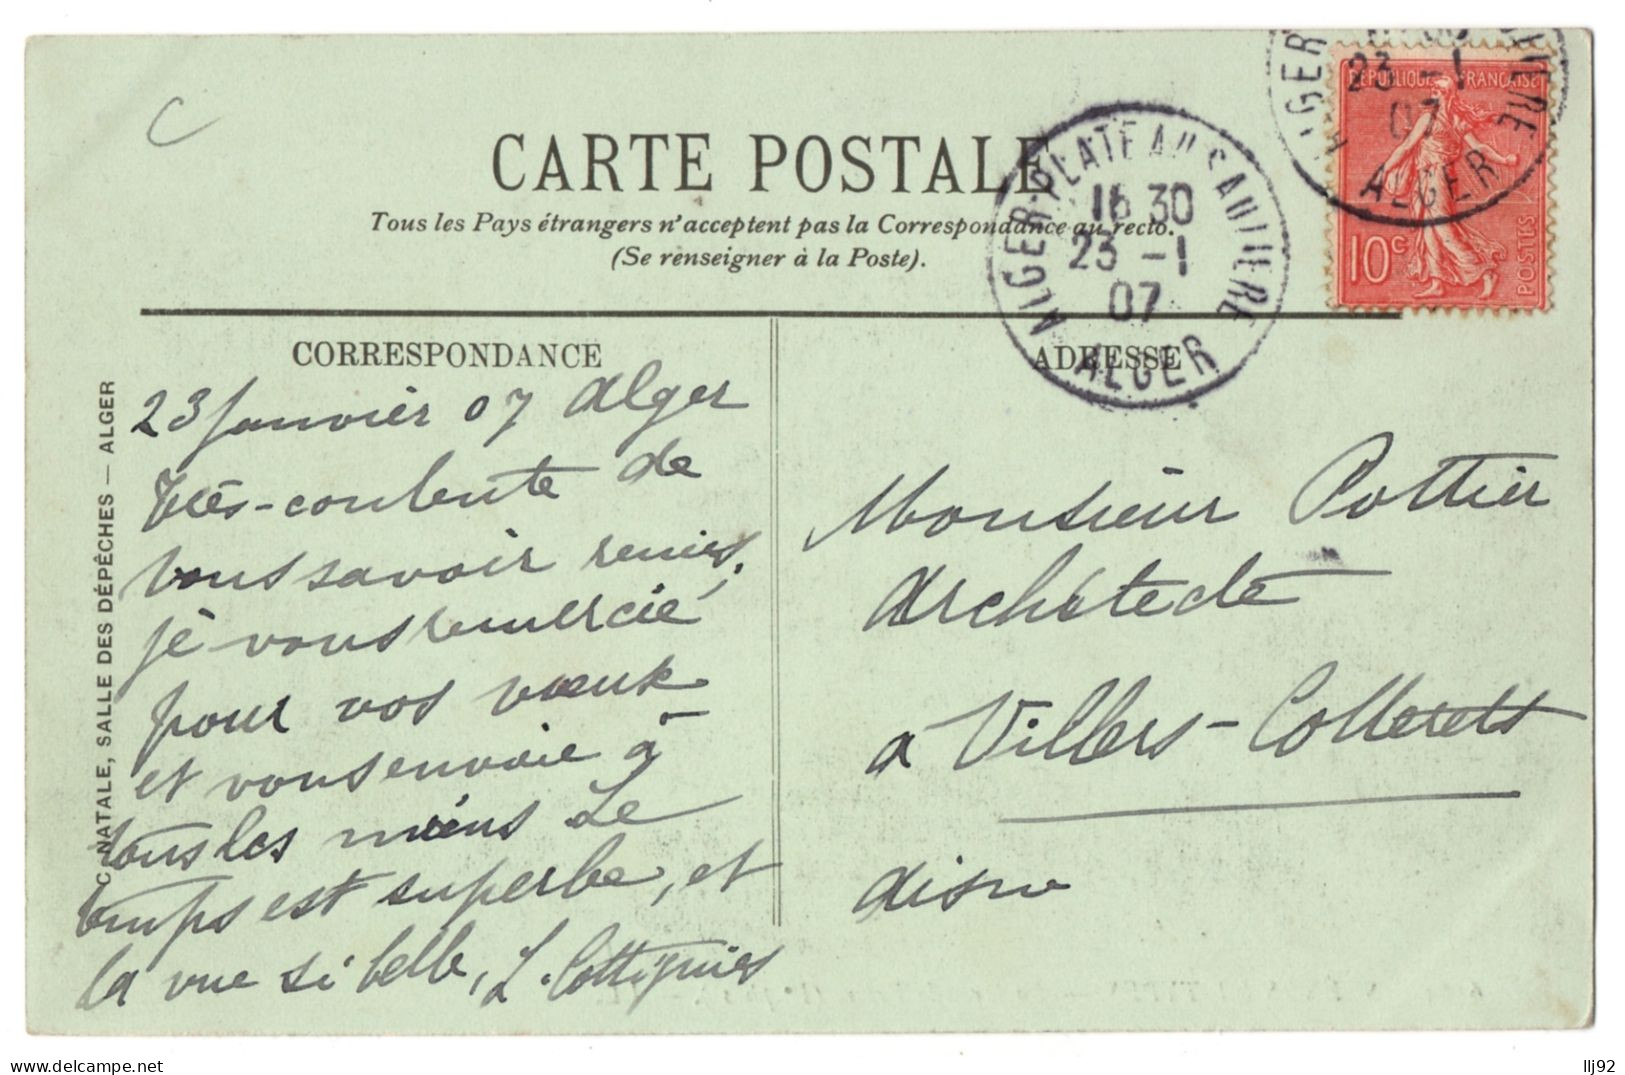 C
CARTE POSTALE
Tous les Pays étrangers n'acceptent pas la Correspondance au recto.
(Se renseigner à la Poste).
ALGER-PLATEAU SAULIERE
16 30
23 -1
07
ALGER
23 -1
07
ALGER
RÉPUBLIQUE FRANÇAISE
10c
POSTES
CORRESPONDANCE
23 Janvier 07 Alger
très-contente de
vous savoir remis,
je vous remercie
pour vos vœux
et vous envoie à
tous les miens Le
temps est superbe, et
la vue si belle, L. Cottignies
ADRESSE
Monsieur Pottier
Architecte
a Villers-Cotterets
aisne
C. NATALE, SALLE DES DÉPÊCHES — ALGER
llj92